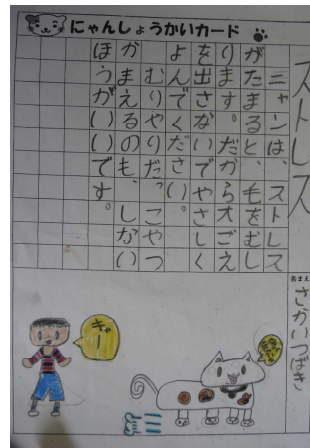 にゃんしょうかいカード
ストレス
ニャンは、ストレス
がたまると、毛をむし
ります。だから大ごえ
を出さないでやさしく
よんでください。
むりやりだっこやつ
かまえるのも、しない
ほうがいいです。
名まえ
さかいつばき
ギー